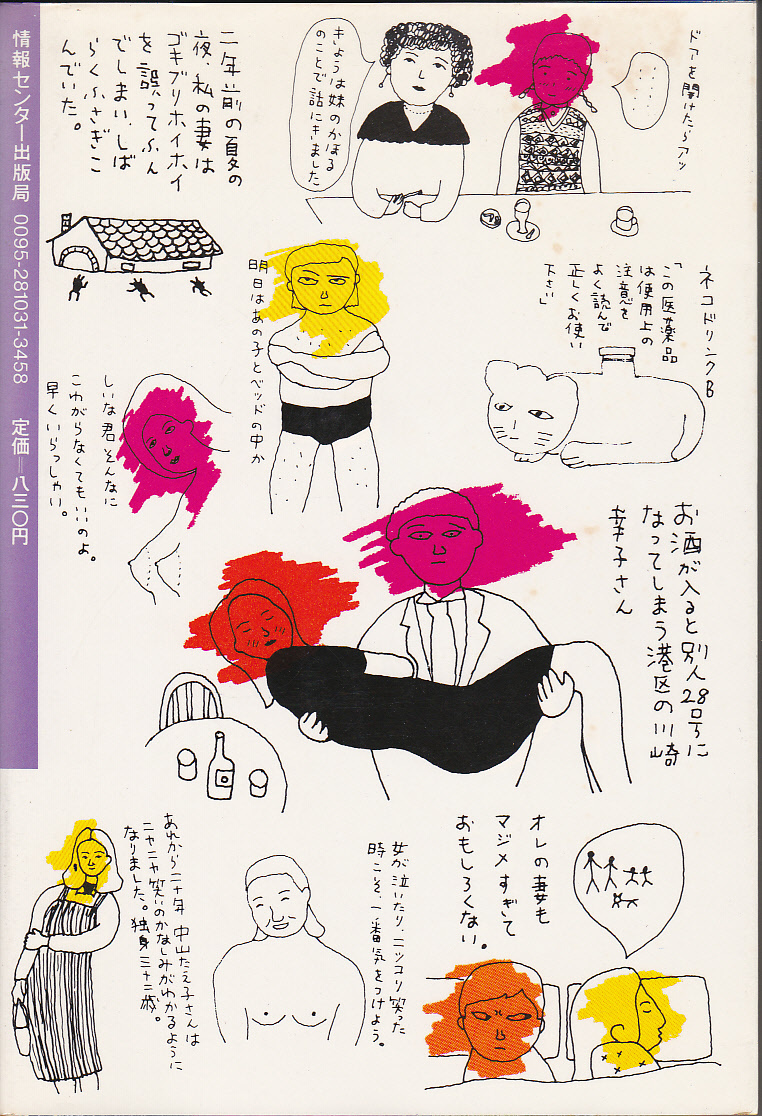 ドアを開けたらアッ
きょうは妹のかほる
のことで話にきました
二年前の夏の
夜、私の妻は
ゴキブリホイホイ
を誤ってふん
でしまい、しば
らくふさぎこ
んでいた。
情報センター出版局 0095-281031-3458 定価=八三〇円
ネコドリンクB
「この医薬品
は使用上の
注意を
よく読んで
正しくお使い
下さい」
明日はあの子とベッドの中か
しいな君そんなに
こわがらなくてもいいのよ。
早くいらっしゃい。
お酒が入ると別人28号に
なってしまう港区の川崎
幸子さん
オレの妻も
マジメすぎて
おもしろくない。
女が泣いたり、ニッコリ笑った
時こそ、一番気をつけよう。
あれから二十年 中山たえ子さんは
ニヤニヤ笑いのかなしみがわかるように
なりました。独身三十二歳。